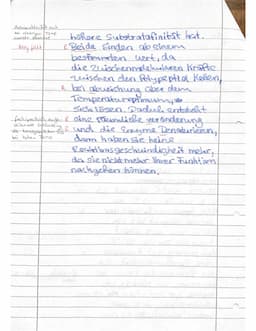 höhere Substratafinität hat.
Beide finden ab einem
bestimmten Wert, da
die zwischenmolekularen Kräfte
zwischen den Polypeptid Ketten,
bei abweichung über dem
Temperaturoptimum,
sich lösen. Dadurch entsteht
eine räumliche veränderung
und die Enzyme Denaturieren,
dann haben sie keine
Reaktionsgeschwindigkeit mehr,
da sie nicht mehr ihrer Funktion
nachgehen können.